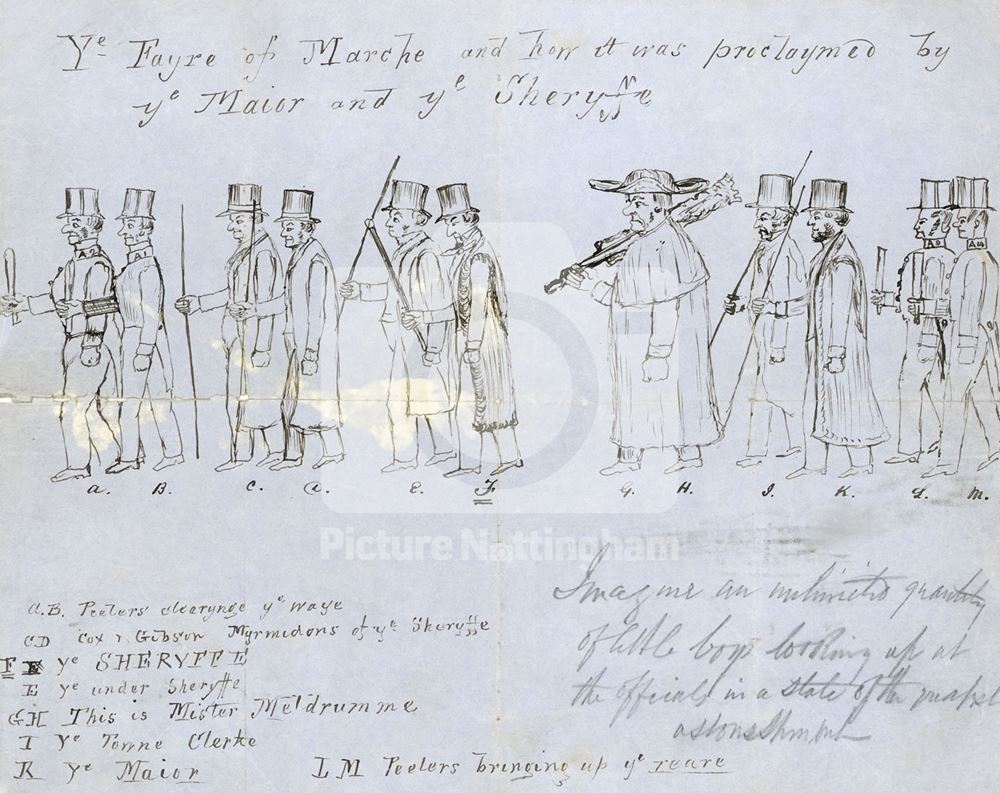 Ye Fayre of Marche and how it was proclaymed by
ye Maior and ye Sheryffe
A2 A1 A3 A4
a. B. C. d. E. F. G. H. I. K. L. M.
Picture Nottingham
A.B. Peelers clearynge ye waye
CD Cox & Gibson Myrmidons of ye Sheryffe
F ye SHERYFFE
E ye under Sheryffe
GH This is Mister Meldrumme
I ye Towne Clerke
K ye Maior
LM Peelers bringing up ye reare
Imagine an unlimited quantity
of little boys looking up at
the officials in a state of the greatest
astonishment